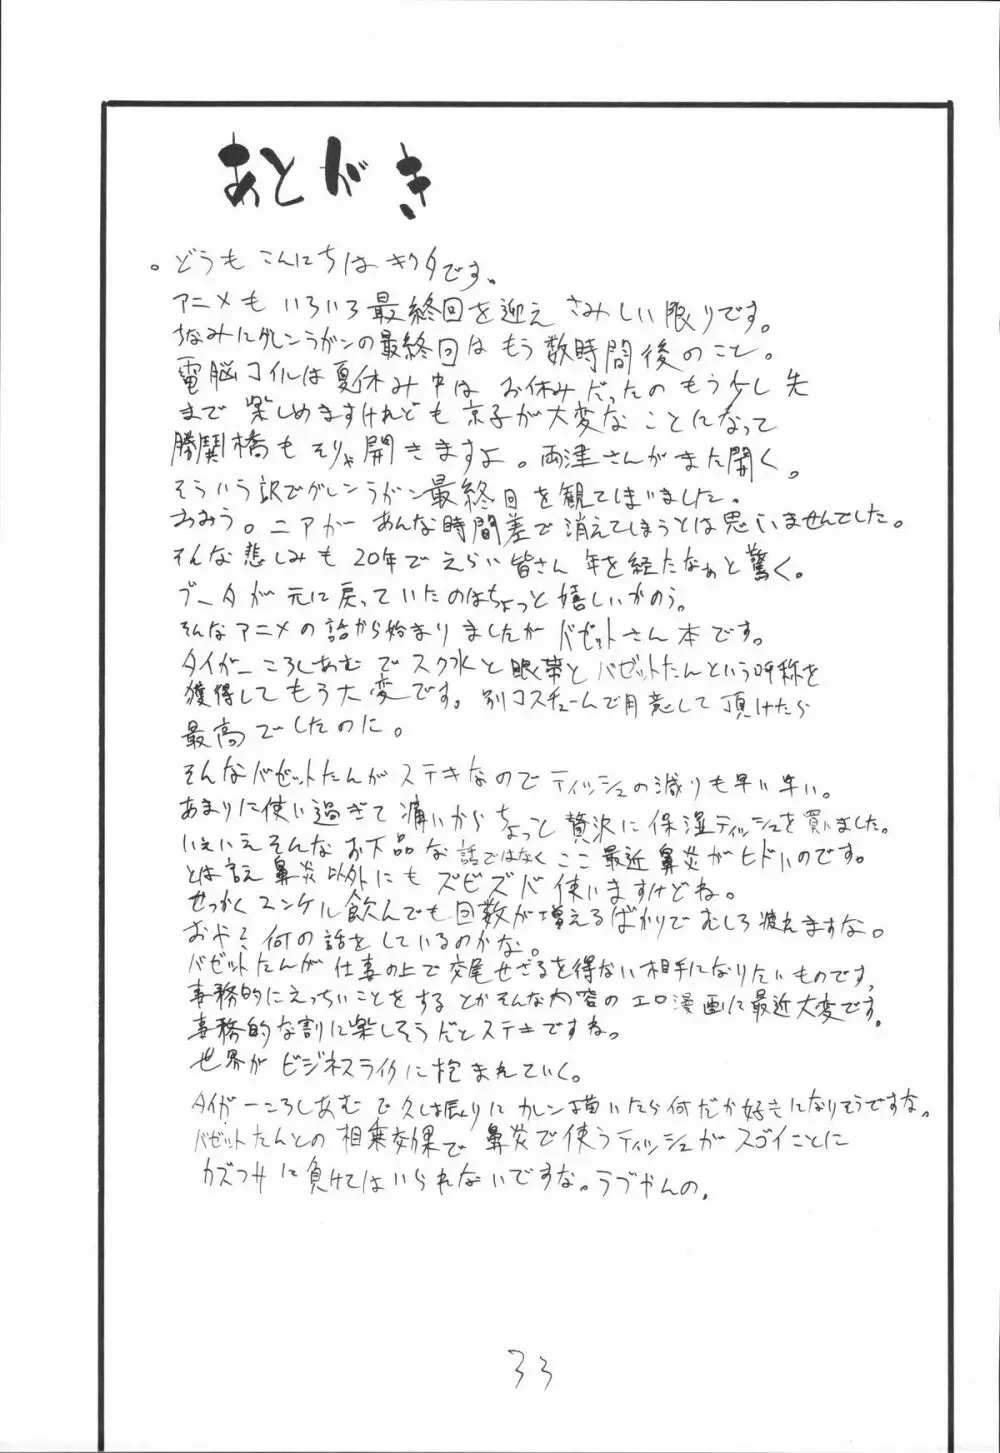 あとがき
。どうも こんにちは キクタです。
アニメも いろいろ最終回を迎え さみしい限りです。
ちなみにグレンラガンの最終回は もう数時間後のこと。
電脳コイルは夏休み中は お休みだったのもう少し先
まで 楽しめますけれども 京子が大変な ことになって
勝鬨橋もそりゃ開きますよ。両津さんがまた開く。
そういう訳でグレンラガン最終回を観てしまいました。
おおう。ニアが あんな時間差で 消えてしまうとは思いませんでした。
そんな悲しみも 20年でえらい皆さん 年を経たなぁと驚く。
ブータが 元に戻っていたのはちょっと嬉しいかのう。
そんなアニメの話から始まりましたが バゼットさん本です。
タイガーころしあむ でスク水と眼帯と バゼットたんという呼称を
獲得して もう大変です。別コスチュームで用意して 頂けたら
最高でしたのに。
そんなバゼットたんが ステキなので ティッシュの減りも早い早い。
あまりに使い過ぎて 痛いから ちょっと 贅沢に 保湿ティッシュを買いました。
いえいえそんな お下品な 話ではなく ここ 最近 鼻炎がヒドいのです。
とは言え 鼻炎以外にも ズビズバ 使いますけどね。
せっかく ユンケル飲んでも回数が増えるばかりで むしろ疲れますな。
おや?何の話をしているのかな。
バゼットたんが 仕事の上で 交尾せざるを得ない 相手になりたいものです。
事務的にえっちいことをする とかそんな内容の エロ漫画に 最近大変です。
事務的な割に楽しそうだとステキですね。
世界が ビジネスライクに抱まれていく。
タイガーころしあむ で久し振りに カレン描いたら何だか好きになりそうですな。
バゼットたんとの 相乗効果で 鼻炎で使うティッシュが スゴイことに
カズフサに負けてはいられないですな。ラブやんの。
33